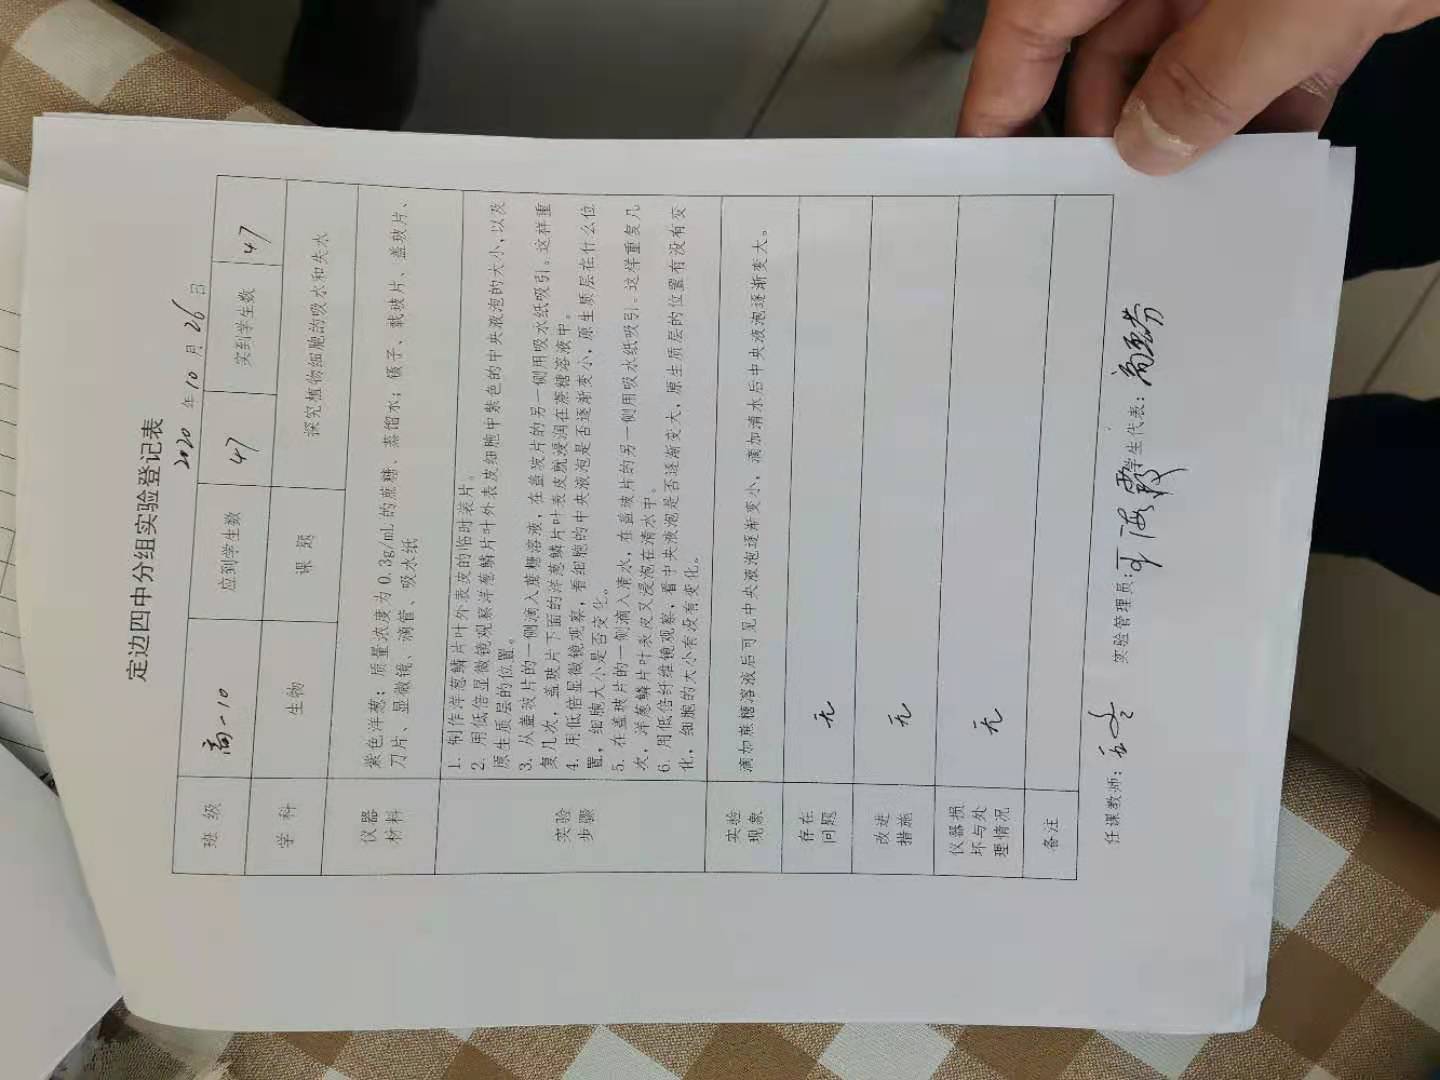 定边四中分组实验登记表
2020 年 10 月 26 日
班 级 高一10 应到学生数 47 实到学生数 47
学 科 生物 课 题 探究植物细胞的吸水和失水
仪器 材料
紫色洋葱；质量浓度为 0.3g/mL 的蔗糖、蒸馏水；镊子、载玻片、盖玻片、
刀片、显微镜、滴管、吸水纸
实验 步骤
1. 制作洋葱鳞片叶外表皮的临时装片。
2. 用低倍显微镜观察洋葱鳞片叶外表皮细胞中紫色的中央液泡的大小，以及
原生质层的位置。
3. 从盖玻片的一侧滴入蔗糖溶液，在盖玻片的另一侧用吸水纸吸引。这样重
复几次，盖玻片下面的洋葱鳞片叶表皮就浸润在蔗糖溶液中。
4. 用低倍显微镜观察，看细胞的中央液泡是否逐渐变小，原生质层在什么位
置，细胞大小是否变化。
5. 在盖玻片的一侧滴入清水，在盖玻片的另一侧用吸水纸吸引。这样重复几
次，洋葱鳞片叶表皮又浸泡在清水中。
6. 用低倍纤维镜观察，看中央液泡是否逐渐变大，原生质层的位置有没有变
化，细胞的大小有没有变化。
实验 现象
滴加蔗糖溶液后可见中央液泡逐渐变小，滴加清水后中央液泡逐渐变大。
存在 问题 无
改进 措施 无
仪器损 坏与处 理情况 无
备注
任课教师： 实验管理员： 学生代表：